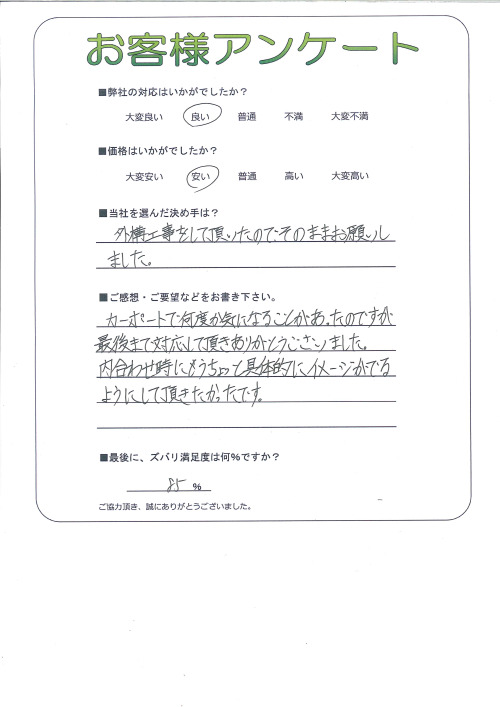 お客様アンケート
■弊社の対応はいかがでしたか？
大変良い 良い 普通 不満 大変不満
■価格はいかがでしたか？
大変安い 安い 普通 高い 大変高い
■当社を選んだ決め手は？
外構工事をして頂いたので、そのままお願いし
ました。
■ご感想・ご要望などをお書き下さい。
カーポートで何度か気になることがあったのですが
最後まで対応して頂きありがとうございました。
内合わせ時にもうちょっと具体的にイメージがでる
ようにして頂きたかったです。
■最後に、ズバリ満足度は何％ですか？
85 %
ご協力頂き、誠にありがとうございました。